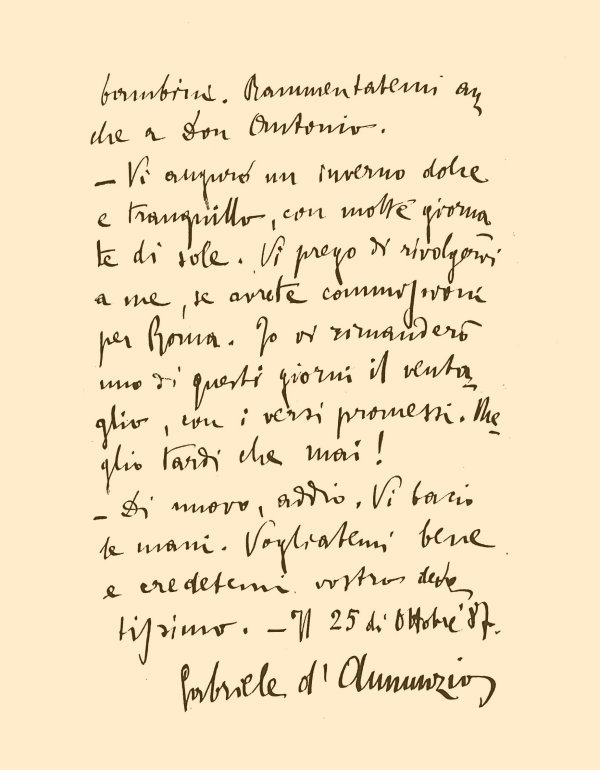 bambini. Rammentatemi an
che a Don Antonio.
– Vi auguro un inverno dolce
e tranquillo, con molte giorna
te di sole. Vi prego di rivolgervi
a me, se avrete commissioni
per Roma. Io vi rimanderò
uno di questi giorni il venta
glio, con i versi promessi. Me
glio tardi che mai!
– Di nuovo, addio. Vi bacio
le mani. Vogliatemi bene
e credetemi vostro devo
tissimo. – Il 25 di Ottobre '87.
Gabriele d'Annunzio